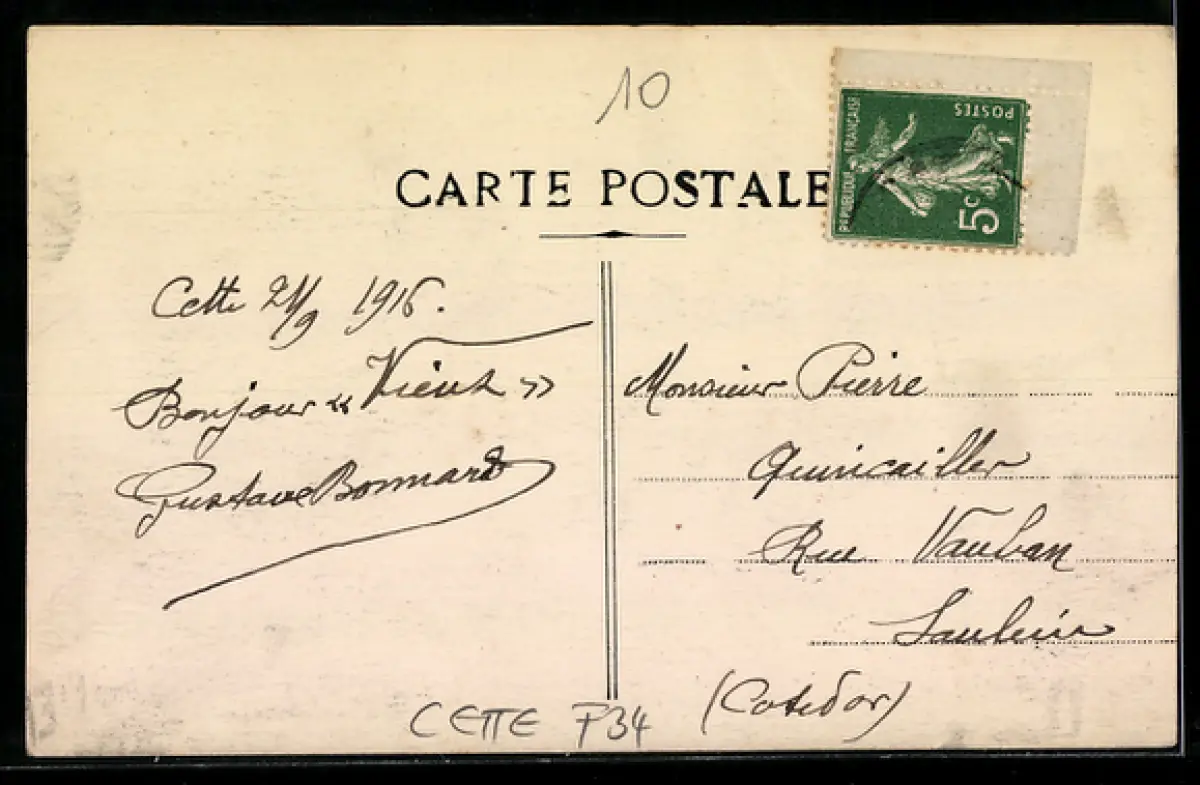 10
RÉPUBLIQUE FRANÇAISE
POSTES
5c
CARTE POSTALE
Cette 21/9 1916.
Bonjour « Vieux »
Gustave Bonnard
Monsieur Pierre
Quincailler
Rue Vauban
Saulieu
(Cotedor)
CETTE F34